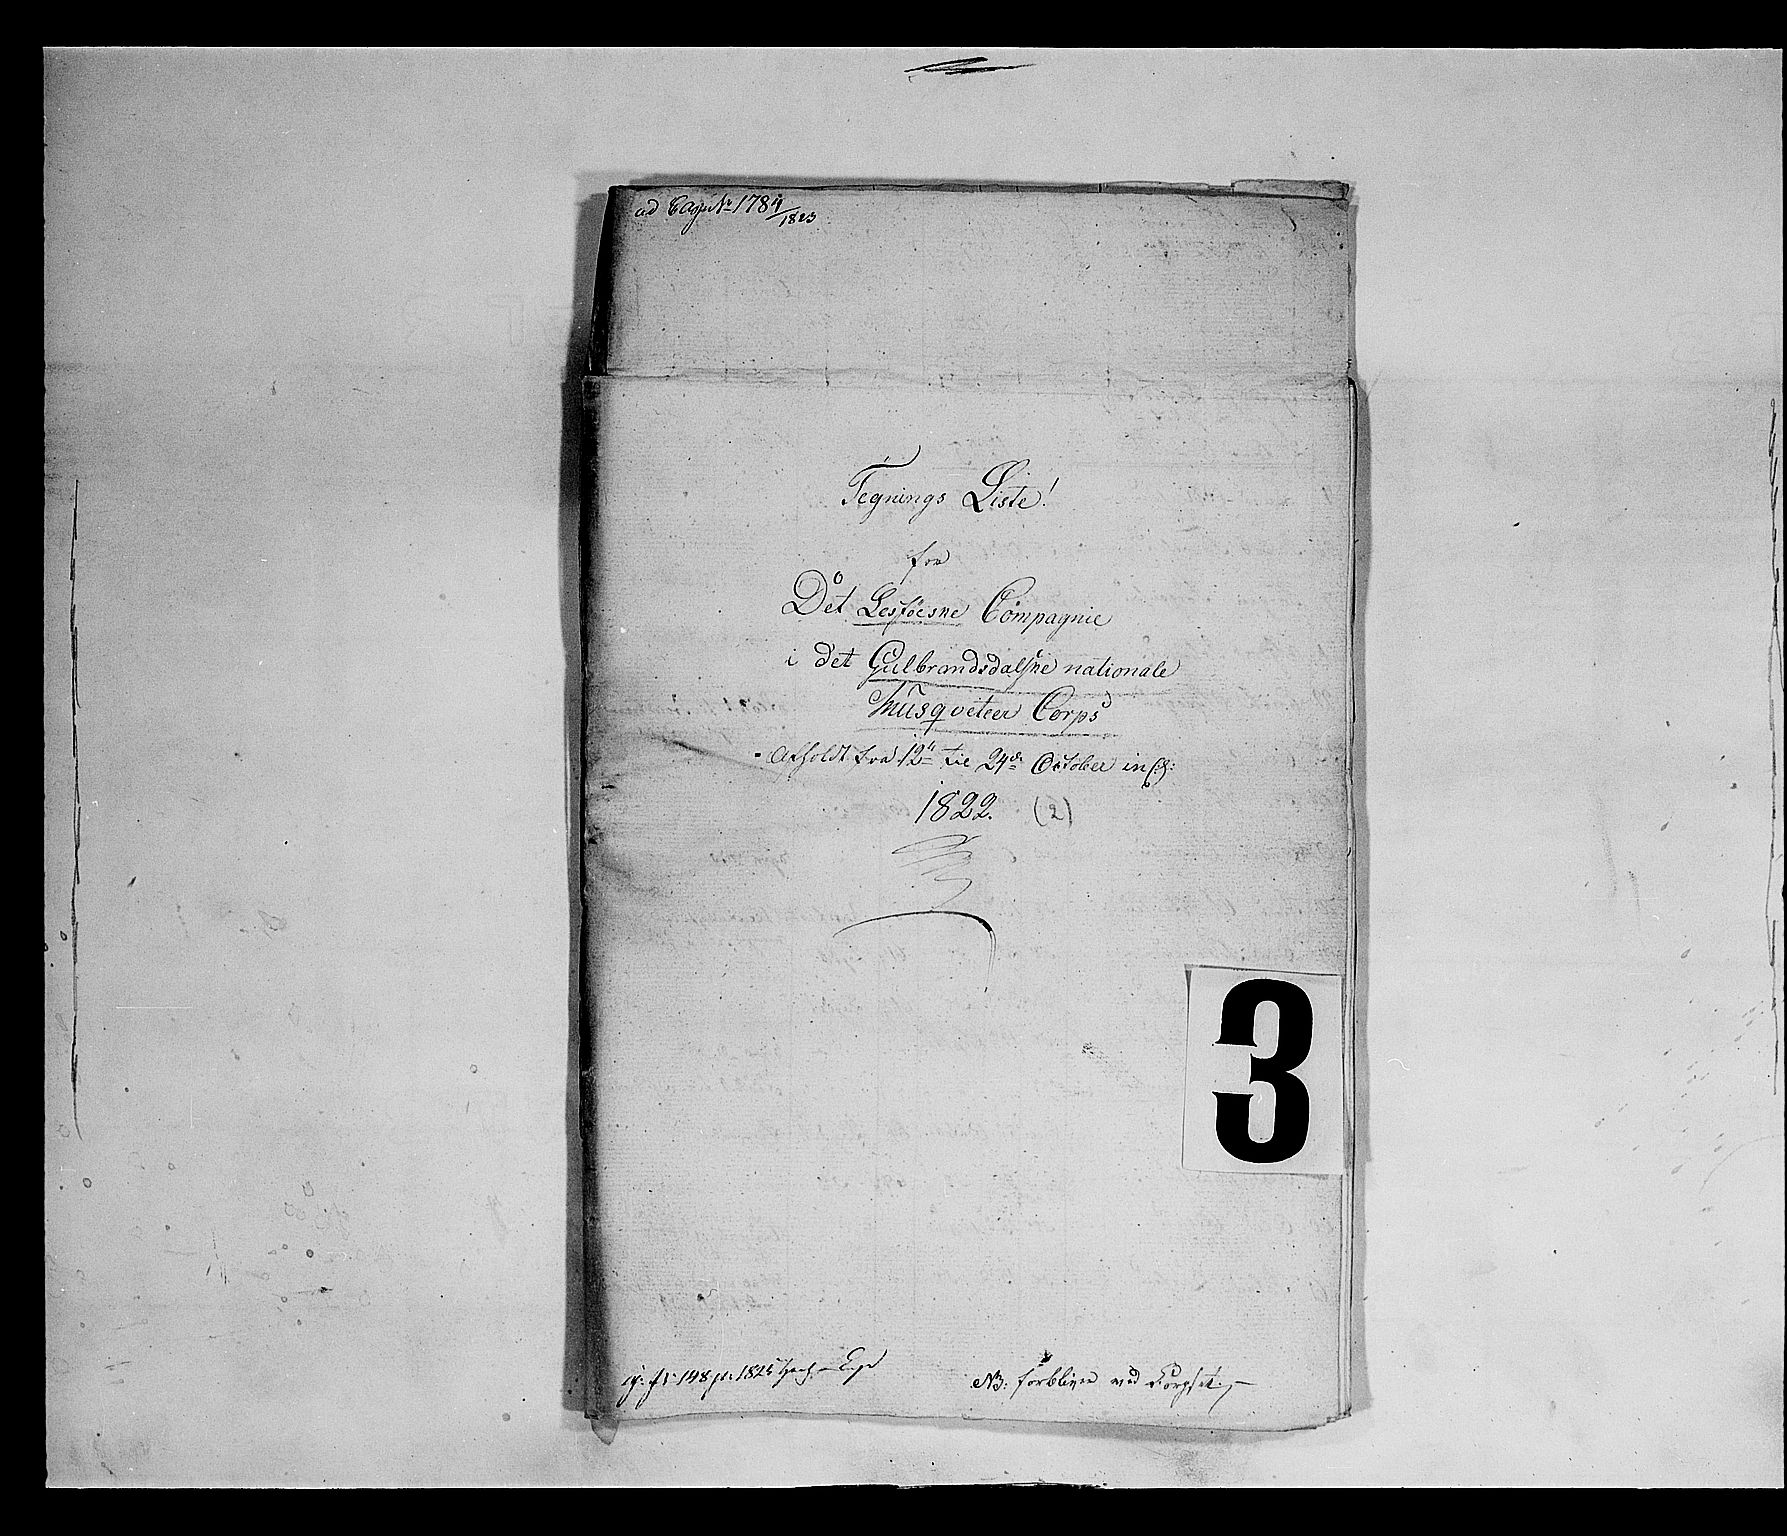 ad Exp: No 1784/1823
Tegnings Liste!
for
Det Lesføesne Compagnie
i det Gulbrandsdalsne nationale
Musqveteer Corps
Afholdt fra 12te til 24de October incl:
1822. (2)
3
148 1825
NB: forblive ved Corpset,-